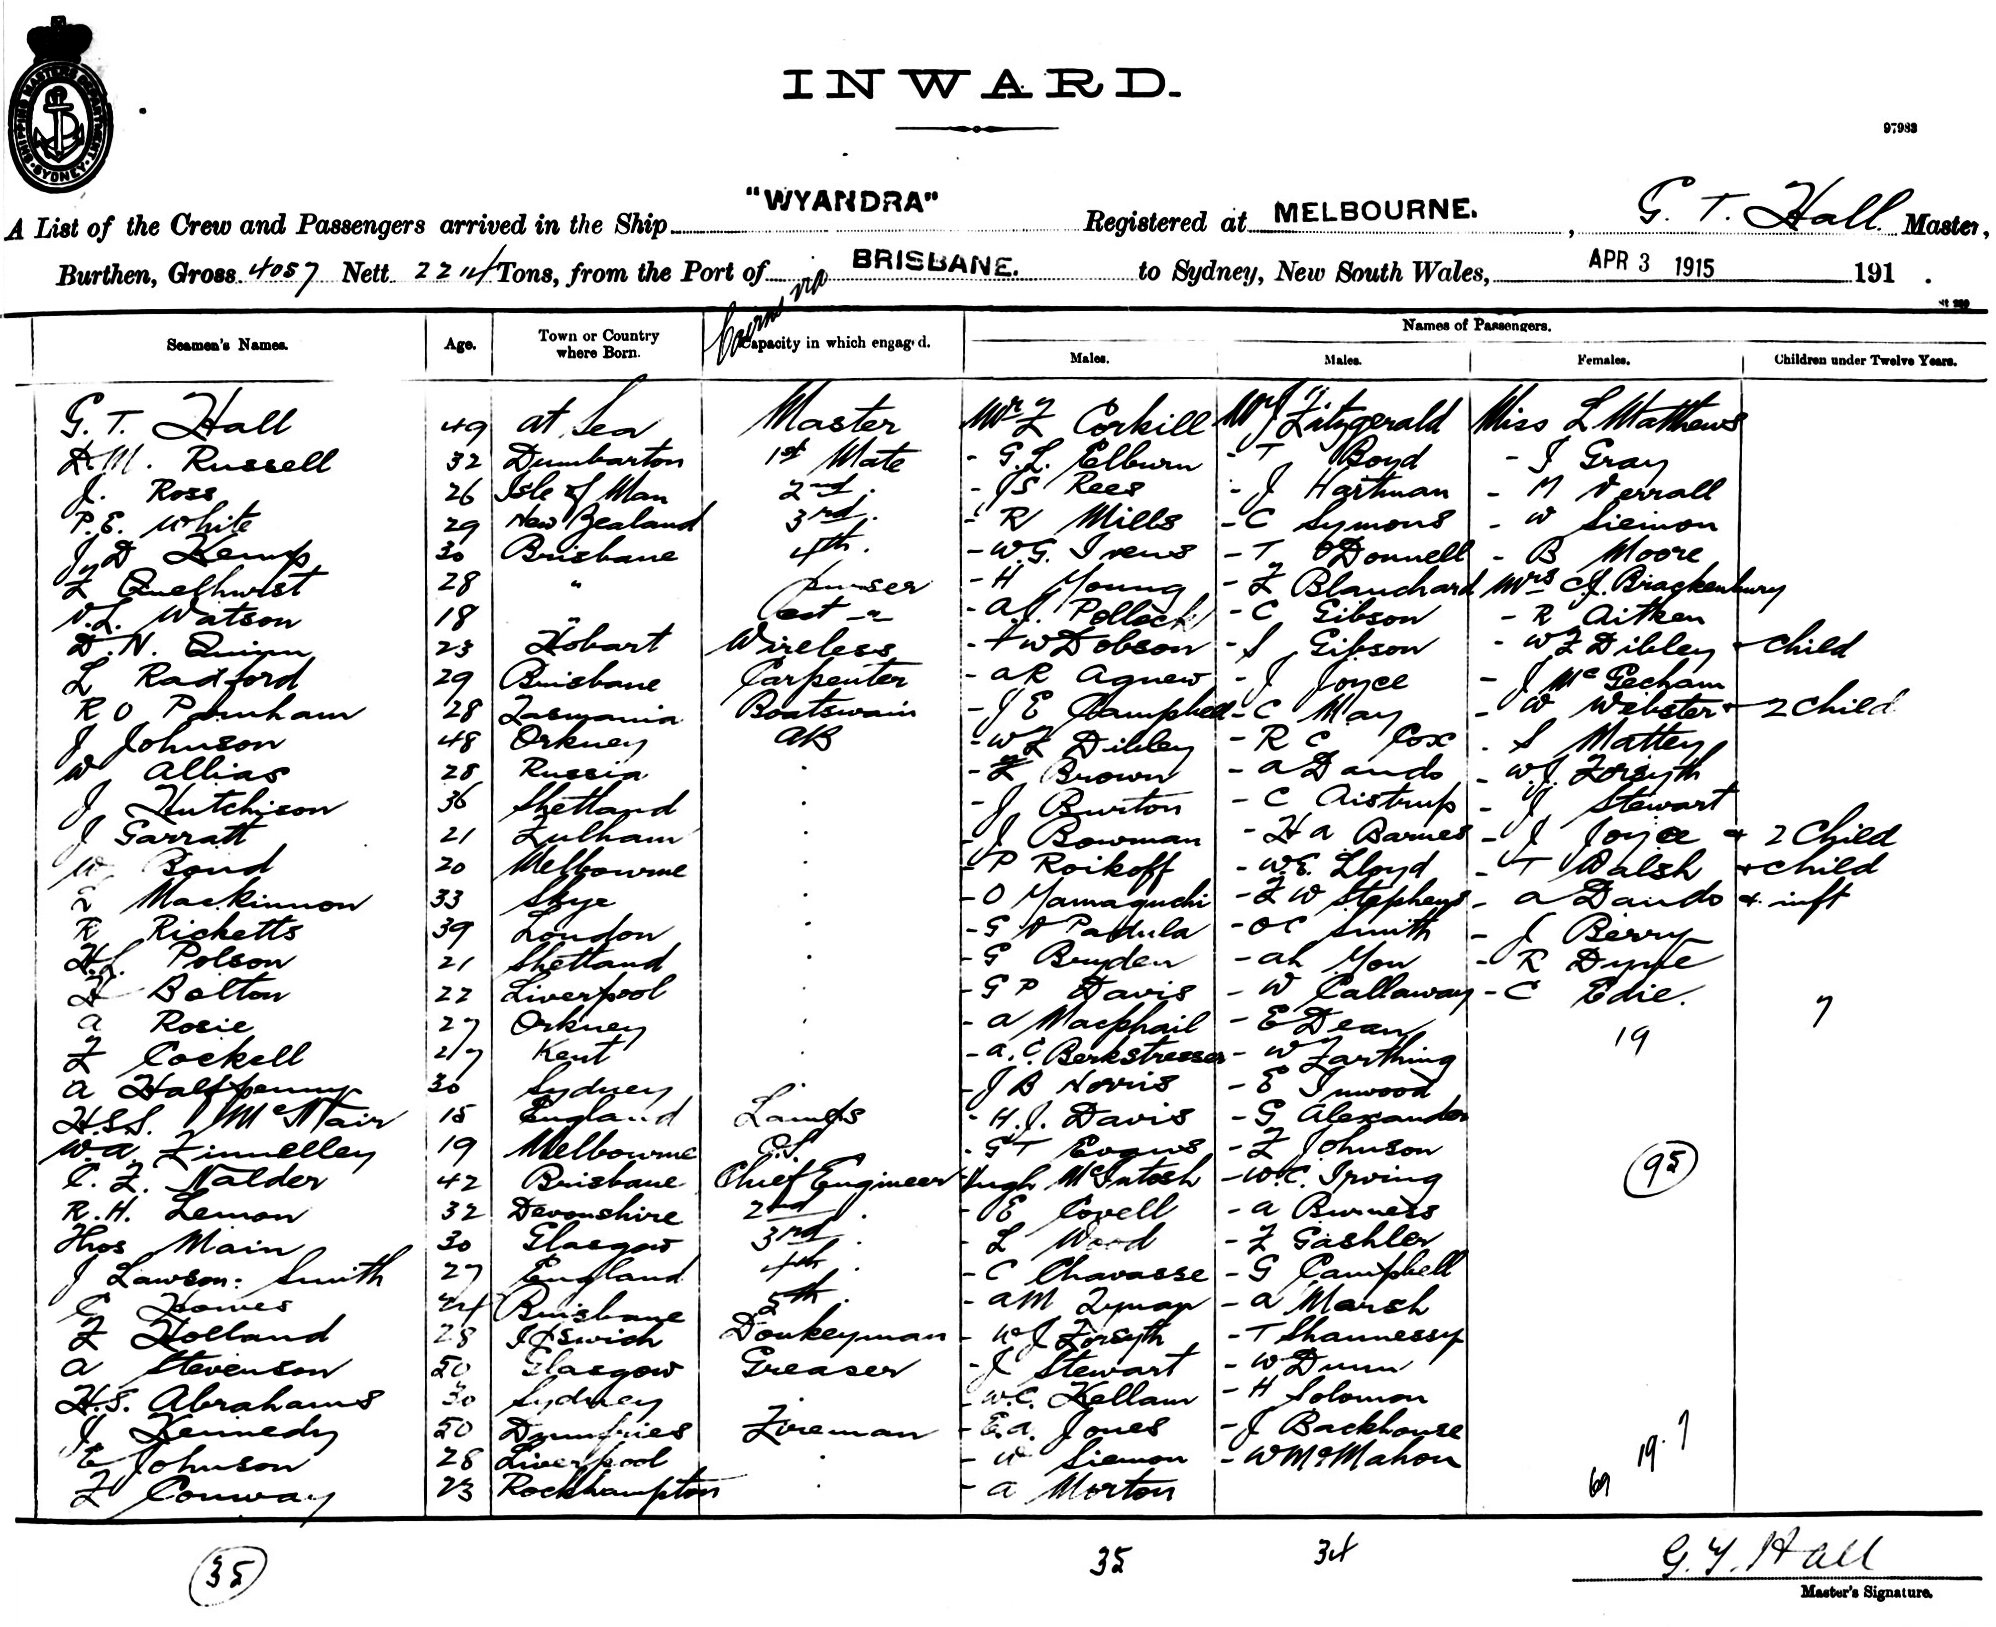 SHIPPING MASTERS DEPARTMENT · SYDNEY ·
INWARD.
97983
A List of the Crew and Passengers arrived in the Ship "WYANDRA" Registered at MELBOURNE. , G. T. Hall Master,
Burthen, Gross 4057 Nett 2214 Tons, from the Port of Cairns via BRISBANE. to Sydney, New South Wales, APR 3 1915 191 .
Seamen's Names. Age. Town or Country where Born. Capacity in which engaged. Names of Passengers.
Males. Males. Females. Children under Twelve Years.
G. T. Hall 49 at Sea Master Mr F Corkill Mr J Fitzgerald Miss L Matthews
D.M. Russell 32 Dumbarton 1st Mate - G.L. Elburn - T Boyd - J Gray
J. Ross 26 Isle of Man 2nd . - J S Rees - J Hartman - M Verrall
P.E. White 29 New Zealand 3rd . - R Mills - C Symons - W Siemon
J D Kemp 30 Brisbane 4th . - W.G. Ivens - T O'Donnell - B Moore
F Quelhurst 28 " purser - H Young - F Blanchard Mrs C J. Brackenbury
V.L. Watson 18 " - A.J. Pollock - C Gibson - R Aitken
D.N. Quinn 23 Hobart Wireless - W Dobson - S Gibson - W F Dibley + child
L Radford 29 Brisbane Carpenter - A R Agnew - J Joyce - J McGecham
R O Parnham 28 Tasmania Boatswain - J E Campbell - C May - W Webster + 2 child
J Johnson 48 Orkney AB - W F Dibley - R C Cox - S Mattey
W Allias 28 Russia . - F Brown - A Dando - W.J. Forsyth
J Hutchison 36 Shetland . - J Burton - C Aistrup - J Stewart
J Garratt 21 Fulham . - J Bowman - H A Barnes - J Joyce + 2 Child
W Bond 20 Melbourne . - P Roikoff - W.E. Lloyd - T Walsh + child
Mackinnon 33 Skye . - O Yamaguchi - F W Stephens - A Dando + inft
R Ricketts 39 London . - G Padula - O C Smith - J Berry
H.L. Polson 21 Shetland . - G Bryden - Ah Yon - R Dyne
H Bolton 22 Liverpool . - G P Davis - W Callaway - C Edie.
A Rosie 27 Orkney . - A Macphail - E Dean 19 7
F Cockell 27 Kent . - A.C. Berkstresser - W Farthing
A Halfpenny 30 Sydney . - J B Norris - E Inwood
H.S.S. McNair 18 England Lamps - H.J. Davis - G Alexander
W.A. Finnelley 19 Melbourne O.S. - G T Evans - F Johnson
C. F. Nalder 42 Brisbane Chief Engineer Hugh McIntosh - W.C. Irving 95
R.H. Lemon 32 Devonshire 2nd . - E Covell - A Burness
Thos Main 30 Glasgow 3rd . - L Wood - F Gashler
J Lawson-Smith 27 England 4th . - C Chavasse - G Campbell
C Howes 24 Brisbane 5th . - A M - A Marsh
F Holland 28 Ipswich Donkeyman - W J Forsyth - T Shannessy
A Stevenson 50 Glasgow Greaser - J Stewart - W Dunn
H.S. Abrahams 30 Sydney . - W.C. Kellam - H Solomon
J Kennedy 50 Dumfries Fireman - E.A. Jones - J Backhouse
E Johnson 28 Liverpool . - W Siemon - W McMahon 69 19. 7
F Conway 23 Rockhampton . - A Morton
35 35 34 G. T. Hall
Master's Signature.